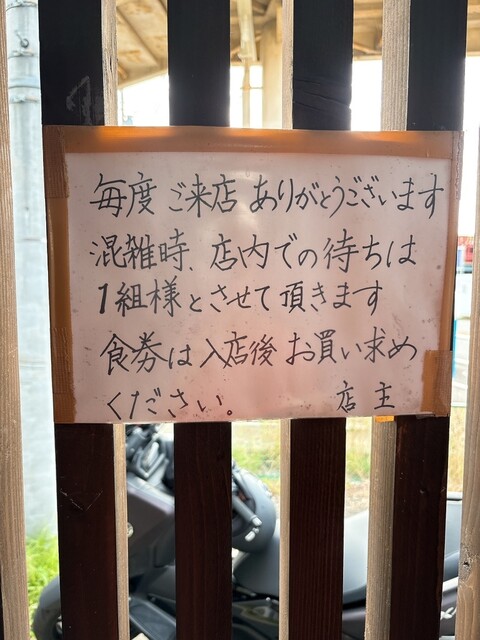 毎度ご来店ありがとうございます
混雑時、店内での待ちは
1組様とさせて頂きます
食券は入店後お買い求め
ください。 店主